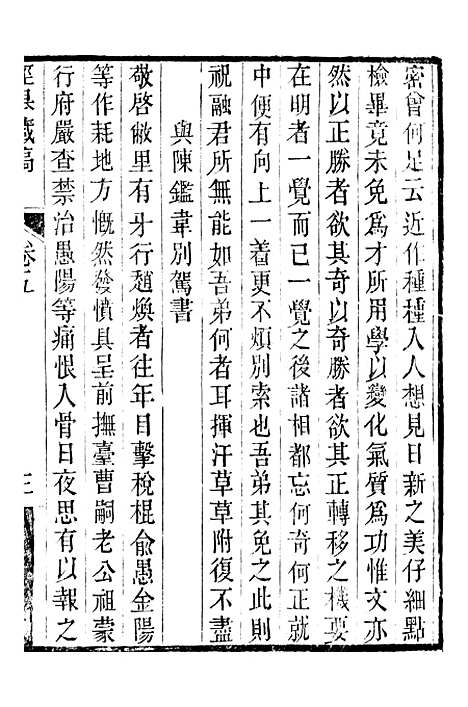 密曾何足云近作種種入人想見日新之美仔細點
檢畢竟未免為才所用學以變化氣質為功惟文亦
然以正勝者欲其奇以奇勝者欲其正轉移之機要
在明者一覺而已一覺之後諸相都忘何奇何正就
中便有向上一着更不煩別索也吾弟其免之此則
祝融君所無能如吾弟何者耳揮汗草草附復不盡
與陳鑑韋別駕書
敬啓敝里有牙行趙煥者往年目擊稅棍俞愚金陽
等作耗地方慨然發憤具呈前撫臺曹嗣老公祖蒙
行府嚴查禁治愚陽等痛恨入骨日夜思有以報之
涇臯藏稿
卷五
三